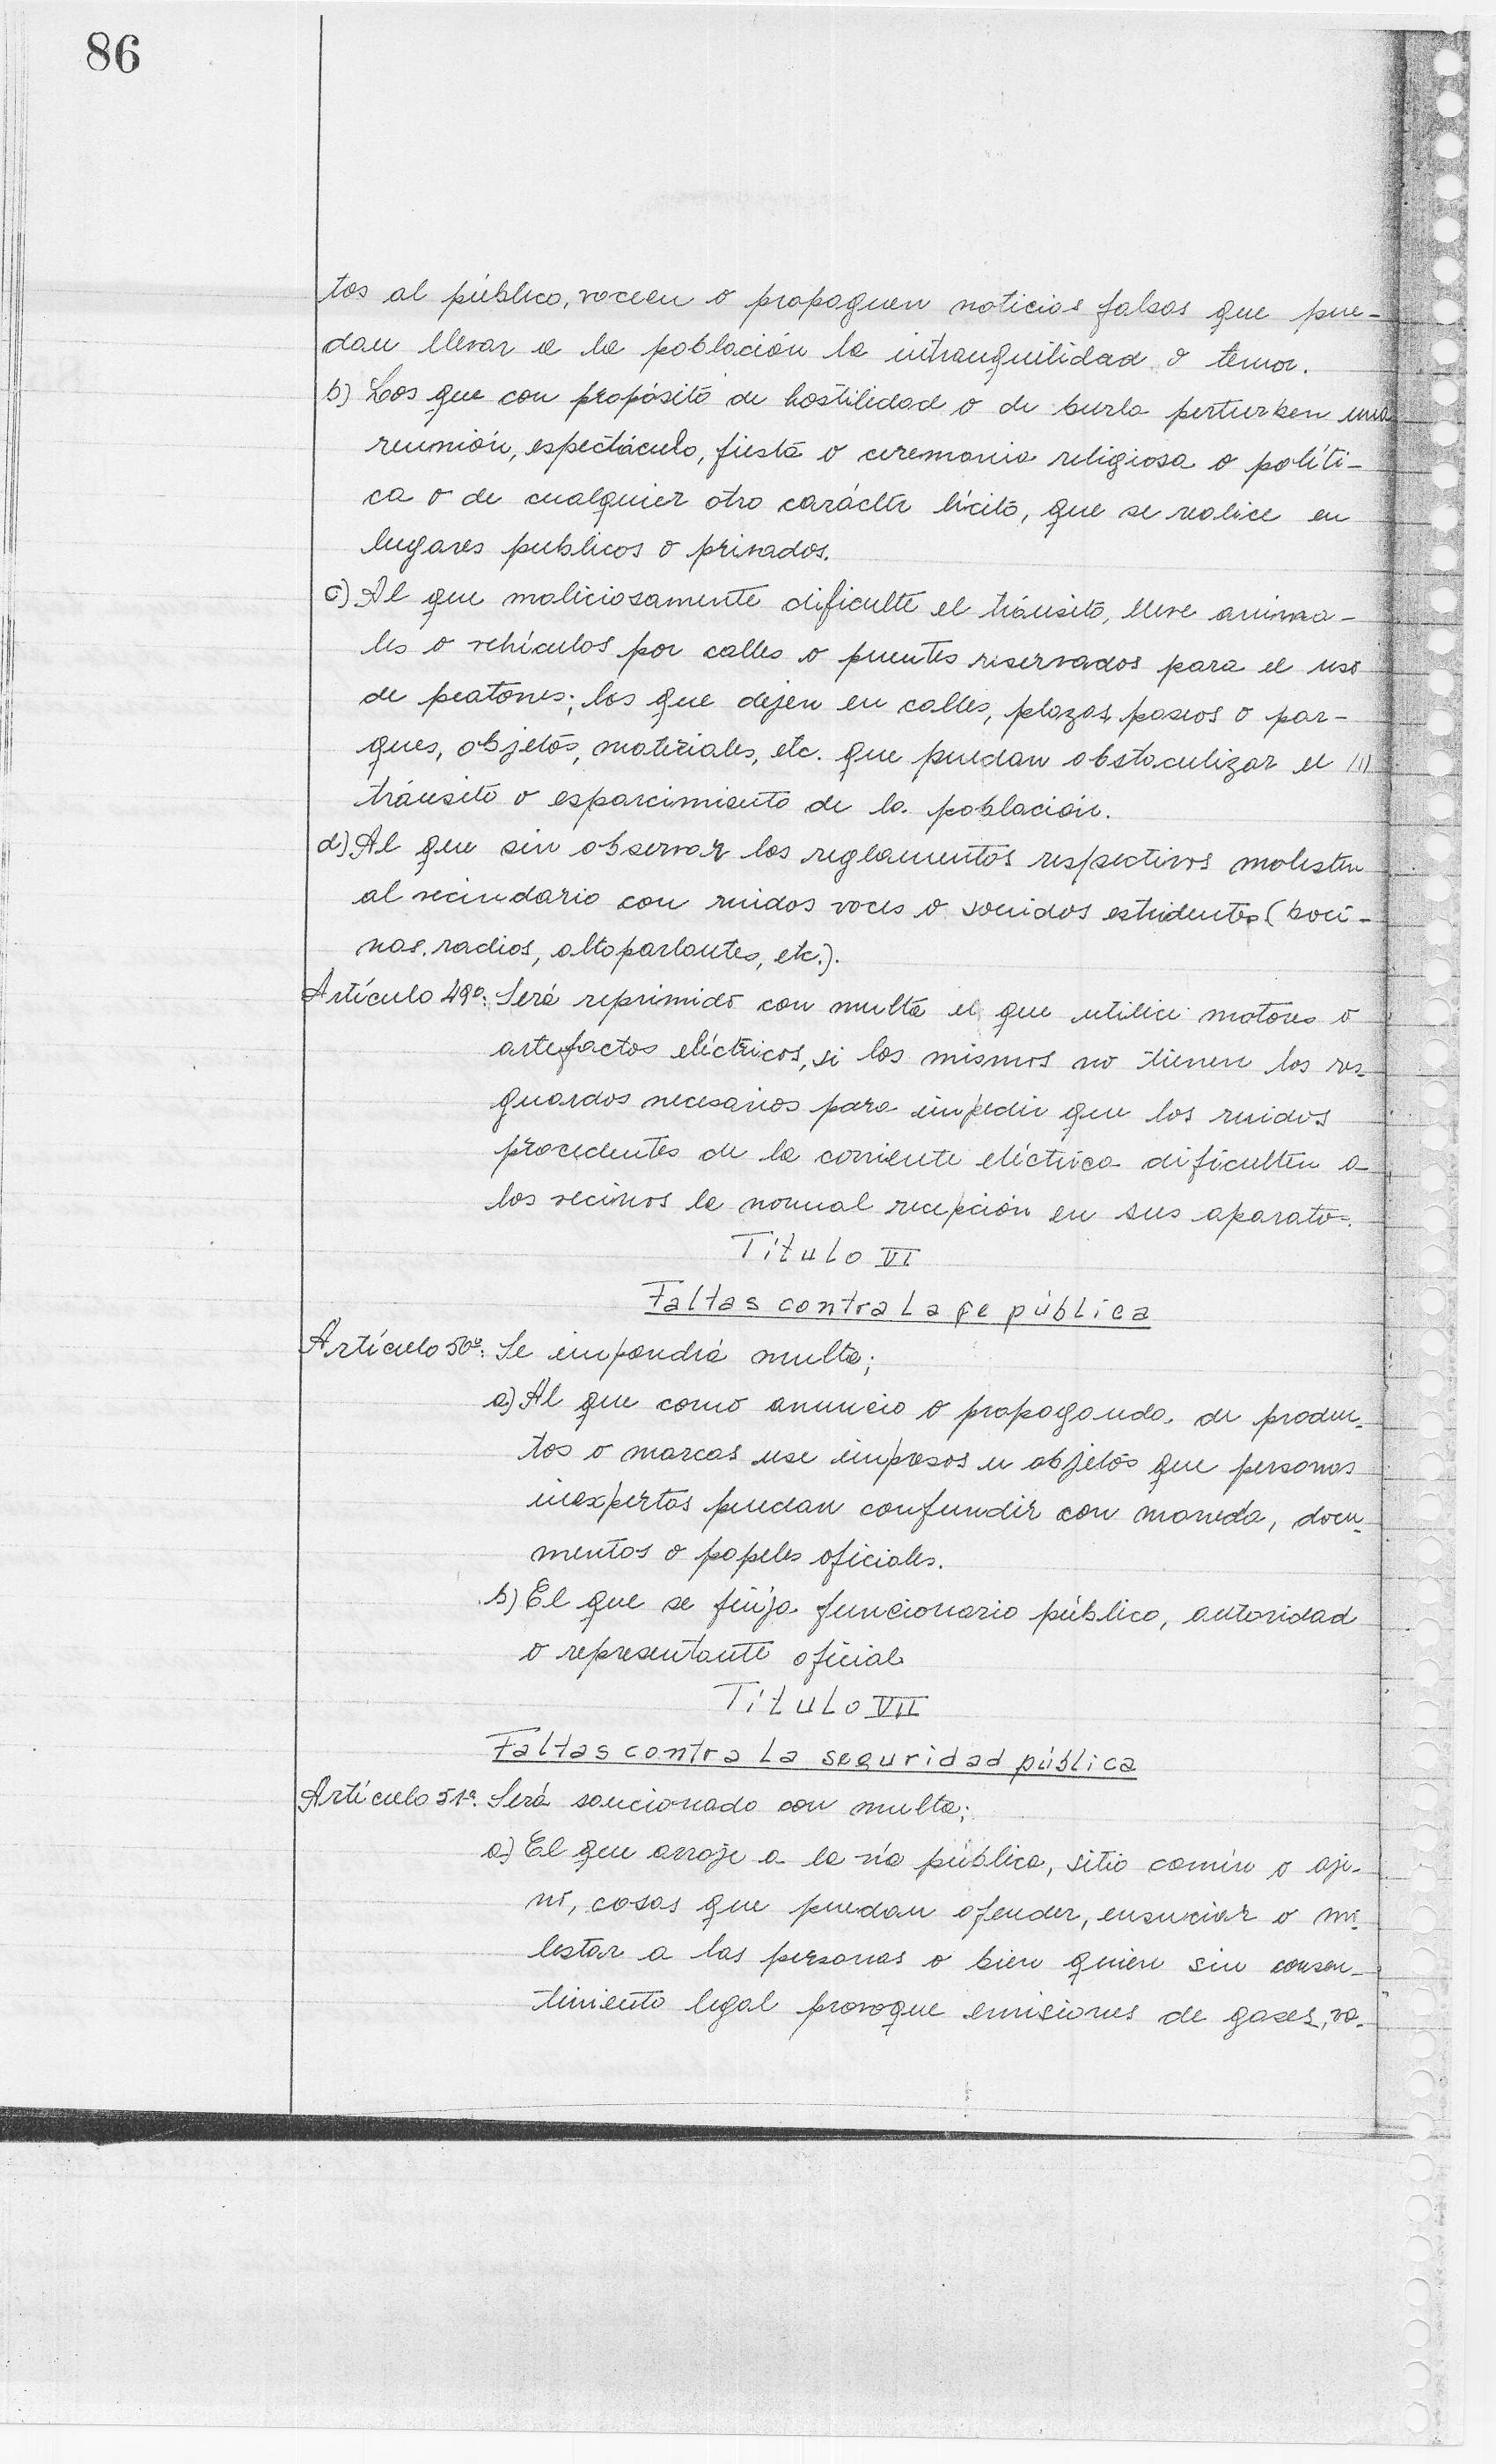 86
tos al público, voceen o propaguen noticias falsas que pue-
dan llevar a la población la intranquilidad o temor.
b) Los que con propósito de hostilidad o de burla perturben una
reunión, espectáculo, fiesta o ceremonia religiosa o políti-
ca o de cualquier otro carácter lícito, que se realice en
lugares publicos o privados.
c) Al que maliciosamente dificulte el tránsito, lleve anima-
les o vehículos por calles o puentes reservados para el uso
de peatones; los que dejen en calles, plazas, paseos o par-
ques, objetos, materiales, etc. que puedan obstaculizar el ///
tránsito o esparcimiento de la población.
d) Al que sin observar los reglamentos respectivos molesten
al vecindario con ruidos voces o sonidos estridentes (boci-
nas, radios, altoparlantes, etc.).
Artículo 49º: Será reprimido con multa el que utilice motores o
artefactos eléctricos, si los mismos no tienen los res-
guardos necesarios para impedir que los ruidos
procedentes de la corriente eléctrica dificulten a
los vecinos la normal recepción en sus aparatos.
Título VI
Faltas contra la fe pública
Artículo 50º: Se impondrá multa;
a) Al que como anuncio o propaganda de produc-
tos o marcas use impresos u objetos que personas
inexpertas puedan confundir con moneda, docu-
mentos o papeles oficiales.
b) El que se finja funcionario público, autoridad
o representante oficial
Título VII
Faltas contra la seguridad pública
Artículo 51º: Será sancionado con multa;
a) El que arroje a la vía pública, sitio común o aje-
no, cosas que puedan ofender, ensuciar o mo-
lestar a las personas o bien quien sin consen-
timiento legal provoque emisiones de gases, va-